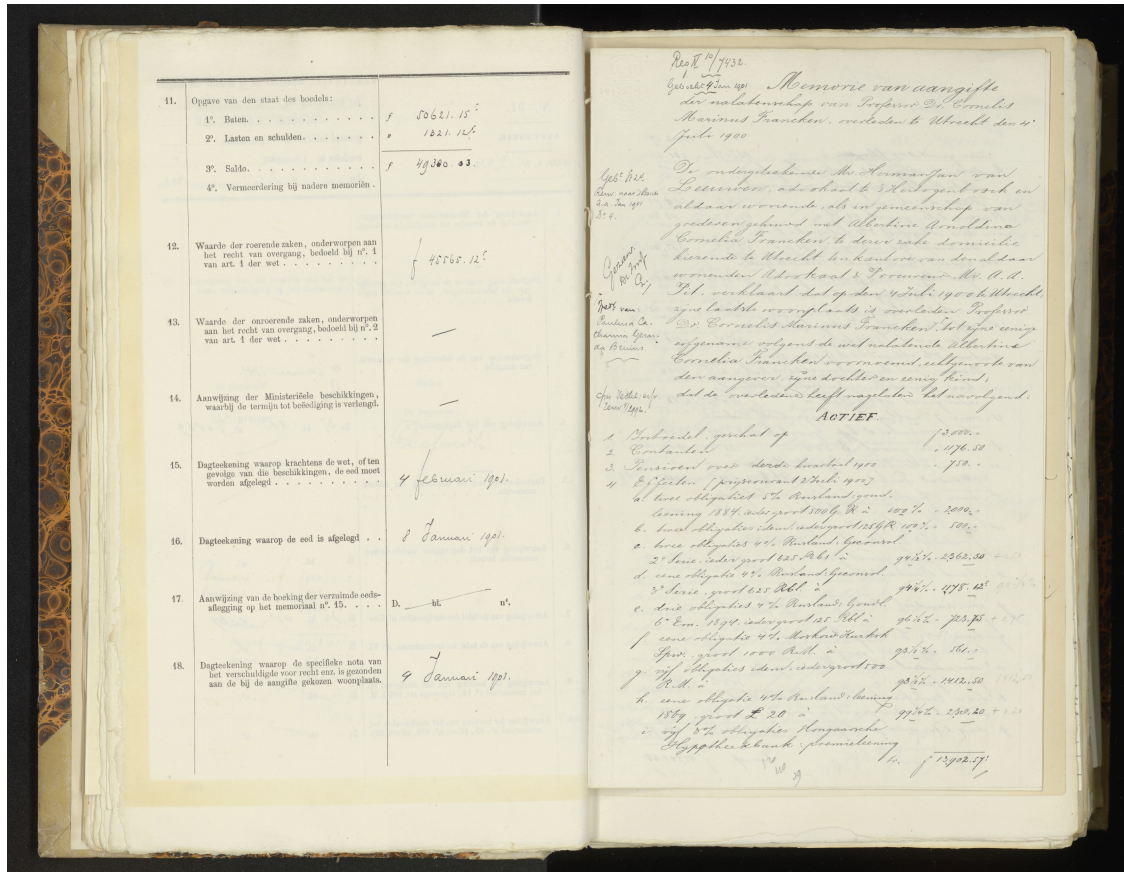 11. Opgave van den staat des boedels:
1º. Baten. . . . . . . . . . . . . ƒ 50621.15⁵
2º. Lasten en schulden. . . . . . . „ 1321.12⁵
3º. Saldo. . . . . . . . . . . . . ƒ 49300.03
4º. Vermeerdering bij nadere memoriën .
12. Waarde der roerende zaken, onderworpen aan
het recht van overgang, bedoeld bij nº. 1
van art. 1 der wet . . . . . . . . . . ƒ 45565.12⁵
13. Waarde der onroerende zaken, onderworpen
aan het recht van overgang, bedoeld bij nº. 2
van art. 1 der wet . . . . . . . . . . —
14. Aanwijzing der Ministeriëele beschikkingen,
waarbij de termijn tot beëediging is verlengd. —
15. Dagteekening waarop krachtens de wet, of ten
gevolge van die beschikkingen, de eed moet
worden afgelegd . . . . . . . . . . . 4 februari 1901.
16. Dagteekening waarop de eed is afgelegd . . 8 Januari 1901.
17. Aanwijzing van de boeking der verzuimde eeds-
aflegging op het memoriaal nº. 15. . . . . D. bl. nº.
18. Dagteekening waarop de specifieke nota van
het verschuldigde voor recht enz. is gezonden
aan de bij de aangifte gekozen woonplaats. 9 Januari 1901.
Reg II 10/7432.
4 Jan 1901
Memorie van aangifte
der nalatenschap van Professor Dr. Cornelis
Marinus Francken, overleden te Utrecht den 4
Juli 1900
De ondergeteekende Mr. Herman Jan van
Leeuwen, advokaat te s'Hertogenbosch en
aldaar wonende, als in gemeenschap van
goederen gehuwd met Albertine Arnoldina
Cornelia Francken, te dezer zake domicilie
kiezende te Utrecht ten kantore van den aldaar
wonenden Advokaat & Procureur Mr. A. A.
Pit, verklaart dat op den 4 Juli 1900 te Utrecht,
zijne laatste woonplaats is overleden Professor
Dr. Cornelis Marinus Francken, tot zijne eenige
erfgename volgens de wet nalatende Albertine
Cornelia Francken voornoemd, echtgenoote van
den aangever, zijne dochter en eenig kind;
dat de overledene heeft nagelaten het navolgend:
van
Paulina Ca-
tharina Gerar-
da Bruins
ACTIEF.
1. Inboedel, geschat op ƒ 2,000.-
2 Contanten „ 1176.50
3. Pensioen over derde kwartaal 1900 „ 750.-
4 Effecten [prijscourant 2 Juli 1900]
a. twee obligatiën 5% Rusland: goud.
leening 1884, ieder groot 500 G. R à 100% - 2000.-
b. twee obligaties idem, ieder groot 125 GR 100% - 500.-
c. twee obligaties 4% Rusland: Geconsol
2e Serie, ieder groot 625 Rbl à 94½% - 2362.50
d. eene obligatie 4% Rusland: Geconsol.
Serie, groot 625 Rbl. à 94¼% - 1178.12⁵
e. drie obligaties 4% Rusland: Goudl.
6e Em. 1894, ieder groot 125 Rbl à 96½% - 723.75
f eene obligatie 4% Moskow Kursk
Spw. groot 1000 R.M. à 93½% - 561.-
g. vijf obligaties idem, ieder groot 500
R.M. à - 1412.50
h. eene obligatie 4% Rusland: leening
1869, groot £ 20 à 99¼% - 238.20
i. vijf 3% obligaties Hongaarsche
Hypotheekbank, premieleening
ƒ 13,902.57⁵